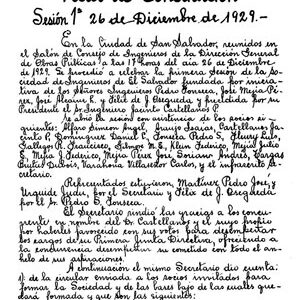 Sesión 1ª 26 de Diciembre de 1929.-
En la Ciudad de San Salvador, reunidos en
el Salón de Consejo de Ingenieros de la Dirección General
de Obras Públicas a las 17 horas del dia 26 de Diciembre
de 1929. Se procedió a celebrar la primera Sesión de la So-
ciedad de Ingenieros de El Salvador fundada por inicia-
tiva de los Señores Ingenieros Pedro Fonseca, José Mejía Pé-
rez, José Alcaine h. y Félix de J. Osegueda y presidida por su
Presidente el Sr Ingeniero Jacinto Castellanos P
Se abrió la sesión con asistencia de los socios si-
guientes: Alfaro Simeón Angel, Ja-
cinto P, Daniel C, Fonseca Pedro S, Luis,
Gallegos R. Francisco, M. E., Klein Federico, Mejía Julio
E, Mejía J. Federico, Mejía Pérez José, Soriano Andrés, Vargas
Varahona Villaseñor Carlos, y el infrascrito Se-
cretario.
Representados estuvieron, Martínez Pedro José, y
por el Secretario y Félix de J. Osegueda
por el Sr. Pedro S. Fonseca.
El Secretario rindió las gracias a los concu-
rrentes en nombre del Dr. Castellanos y el suyo propio
por haberles favorecido con sus votos para desempeñar
los cargos de su Primera Junta Directiva, ofreciendo a
la concurrencia desempeñar su cometido con todo el an-
helo de sus aspiraciones.
A continuación el mismo Secretario dió cuenta:
1) de la circular enviada a los socios invitados para
formar la Sociedad y de las bases bajo de las cuales que-
daría formada y que son las siguientes: